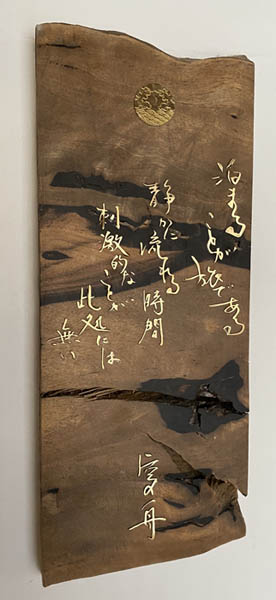 泊まる
ことが旅である
静かに流れる時間
刺激的な
ことが
此処には
無い